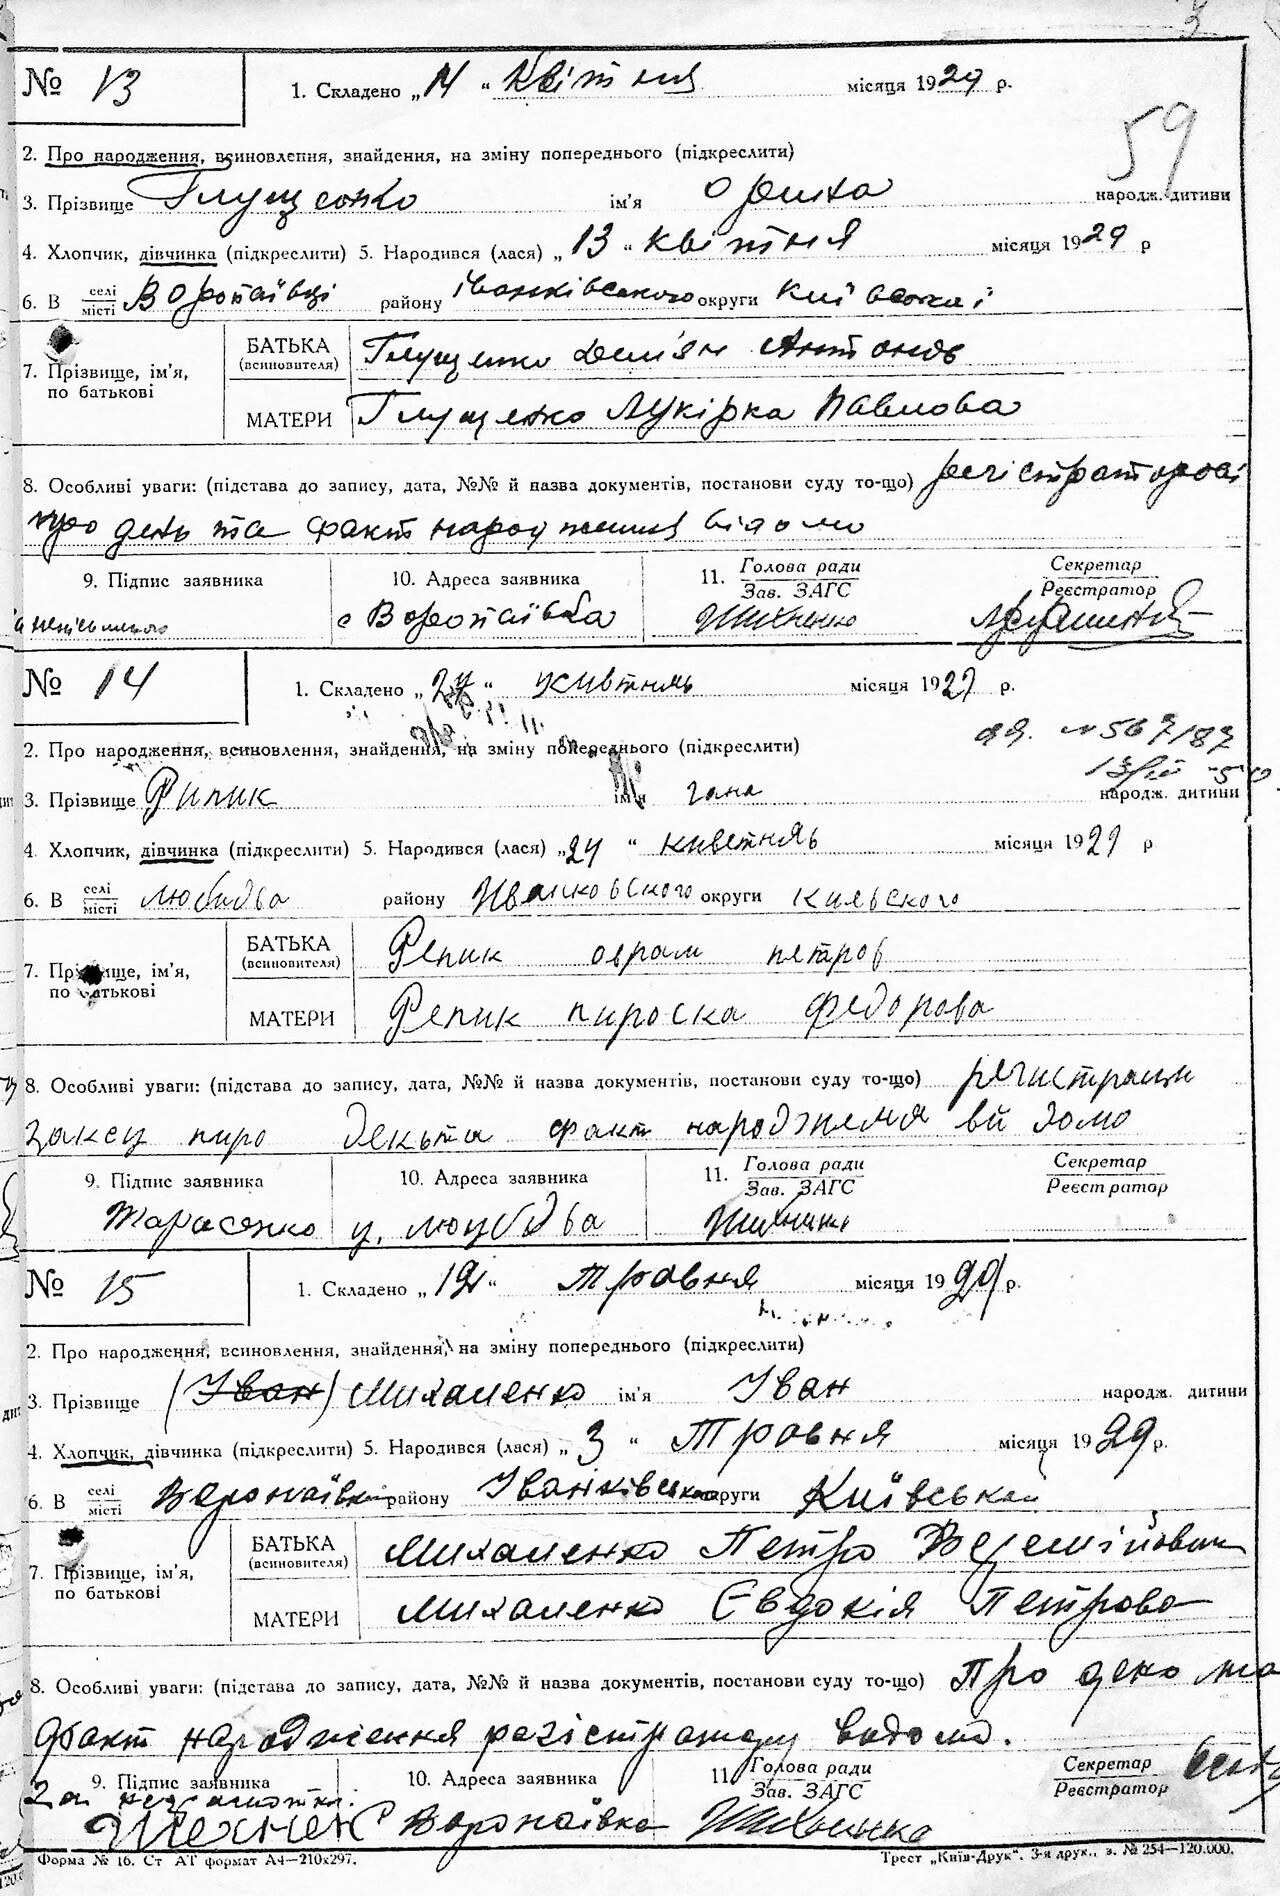 № 13
1. Складено „14“ Квітня місяця 1929 р.
59
2. Про народження, всиновлення, знайдення, на зміну попереднього (підкреслити)
3. Прізвище Глущенко ім'я Орина народж. дитини
4. Хлопчик, дівчинка (підкреслити) 5. Народився (лася) „13“ квітня місяця 1929 р
6. В селі місті Воропаївці району іванківського округи київської
7. Прізвище, ім'я, по батькові
БАТЬКА (всиновителя) Глущенко Дем'ян Антонов
МАТЕРИ Глущенко Лукірка Павлова
8. Особливі уваги: (підстава до запису, дата, №№ й назва документів, постанови суду то-що) регістраторові
про день та факт народження відомо
9. Підпис заявника 10. Адреса заявника 11. Голова ради Зав. ЗАГС Секретар Реєстратор
с Воропаївка
№ 14
1. Складено „24“ кивтняь місяця 1929 р.
2. Про народження, всиновлення, знайдення, на зміну попереднього (підкреслити)
№567/87
3. Прізвище Рипик ім'я гана народж. дитини
4. Хлопчик, дівчинка (підкреслити) 5. Народився (лася) „24“ киветняь місяця 1929 р
6. В селі місті любидва району Иванковского округи киевского
7. Прізвище, ім'я, по батькові
БАТЬКА (всиновителя) Репик оврам петров
МАТЕРИ Репик пироска Федорова
8. Особливі уваги: (підстава до запису, дата, №№ й назва документів, постанови суду то-що)
пиро факт народженя вй домо
9. Підпис заявника 10. Адреса заявника 11. Голова ради Зав. ЗАГС Секретар Реєстратор
Тарасенко
№ 15
1. Складено „12“ травня місяця 1929 р.
2. Про народження, всиновлення, знайдення, на зміну попереднього (підкреслити)
3. Прізвище (Іван) Михаленко ім'я Іван народж. дитини
4. Хлопчик, дівчинка (підкреслити) 5. Народився (лася) „3“ Травня місяця 1929 р.
6. В селі місті Воропаївка району Іванківська округи Київськой
7. Прізвище, ім'я, по батькові
БАТЬКА (всиновителя) Михаленко Петро
МАТЕРИ Михаленко Євдокія Петрова
8. Особливі уваги: (підстава до запису, дата, №№ й назва документів, постанови суду то-що) Про день та
факт народження регістратору водомо.
9. Підпис заявника 10. Адреса заявника 11. Голова ради Зав. ЗАГС Секретар Реєстратор
Воропаївка
Форма № 16. Ст АТ формат А4—210х297. Трест „Київ-Друк“. 3-я друк., з. № 254—120.000.